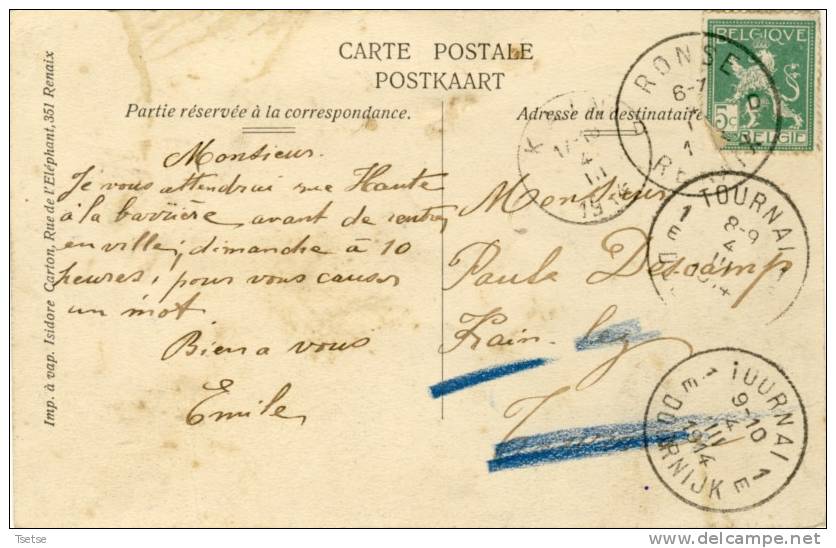 CARTE POSTALE
POSTKAART
Partie réservée à la correspondance.
Adresse du destinataire
Imp. à vap. Isidore Carton, Rue de l'Eléphant, 351 Renaix
Monsieur.
Je vous attendrai rue Haute
à la barrière, avant de rentrer
en ville, dimanche à 10
heures, pour vous causer
un mot.
Bien a vous
Emile
Monsieur
Paula Descamp
Kain-lez
BELGIQUE
5c
BELGIË
RONSE
6-1
RENAIX
D
K
4
III
1914
TOURNAI 1
8-9
4
1 E
TOURNAI 1
9-10
4
III
1914
DOORNIJK 1
E
Tsetse
delcampe.net